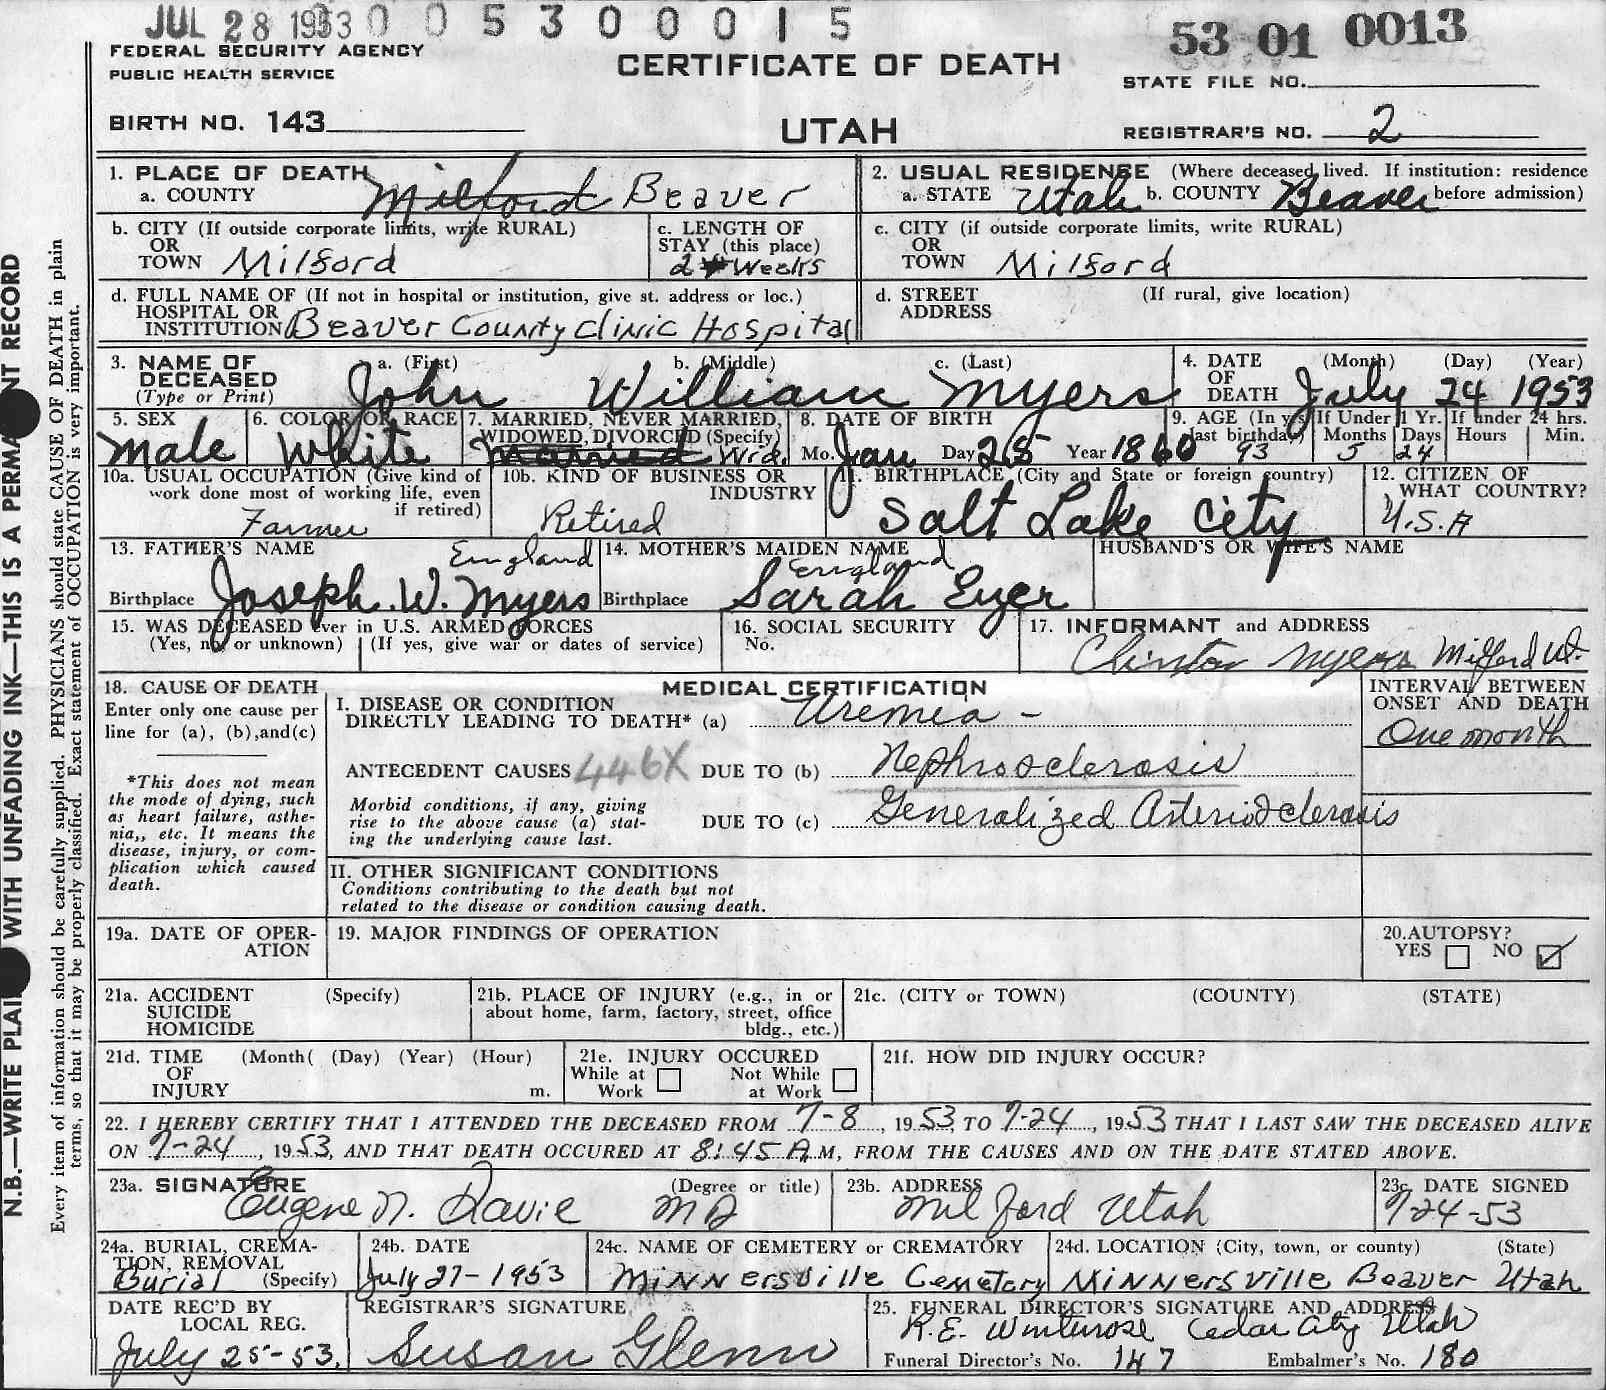 JUL 28 1953 0 0 5 3 0 0 0 1 5
53 01 0013
FEDERAL SECURITY AGENCY
PUBLIC HEALTH SERVICE
CERTIFICATE OF DEATH
STATE FILE NO.
BIRTH NO. 143
UTAH
REGISTRAR'S NO. 2
1. PLACE OF DEATH
a. COUNTY Milford Beaver
2. USUAL RESIDENSE (Where deceased lived. If institution: residence before admission)
a. STATE Utah b. COUNTY Beaver
b. CITY (If outside corporate limits, write RURAL)
OR
TOWN Milford
c. LENGTH OF
STAY (this place)
2 Weeks
c. CITY (if outside corporate limits, write RURAL)
OR
TOWN Milford
d. FULL NAME OF (If not in hospital or institution, give st. address or loc.)
HOSPITAL OR
INSTITUTION Beaver County Clinic Hospital
d. STREET (If rural, give location)
ADDRESS
3. NAME OF
DECEASED
(Type or Print)
a. (First) b. (Middle) c. (Last)
John William Myers
4. DATE
OF
DEATH
(Month) (Day) (Year)
July 24 1953
5. SEX
Male
6. COLOR OR RACE
White
7. MARRIED, NEVER MARRIED,
WIDOWED, DIVORCED (Specify)
Married Wid.
8. DATE OF BIRTH
Mo. Jan Day 28 Year 1860
9. AGE (In y
last birthday)
93
If Under 1 Yr.
Months Days
5 24
If under 24 hrs.
Hours Min.
10a. USUAL OCCUPATION (Give kind of
work done most of working life, even
if retired)
Farmer
10b. KIND OF BUSINESS OR
INDUSTRY
Retired
11. BIRTHPLACE (City and State or foreign country)
Salt Lake City
12. CITIZEN OF
WHAT COUNTRY?
U.S.A
13. FATHER'S NAME England
Birthplace Joseph W. Myers
14. MOTHER'S MAIDEN NAME
England
Birthplace Sarah Eyer
HUSBAND'S OR WIFE'S NAME
15. WAS DECEASED ever in U.S. ARMED FORCES
(Yes, no, or unknown) (If yes, give war or dates of service)
16. SOCIAL SECURITY
No.
17. INFORMANT and ADDRESS
Clinton Myers Milford Ut.
18. CAUSE OF DEATH
Enter only one cause per
line for (a), (b),and(c)
*This does not mean
the mode of dying, such
as heart failure, asthe-
nia,, etc. It means the
disease, injury, or com-
plication which caused
death.
MEDICAL CERTIFICATION
I. DISEASE OR CONDITION
DIRECTLY LEADING TO DEATH* (a) Uremia -
ANTECEDENT CAUSES 446X DUE TO (b) Nephrosclerosis
Morbid conditions, if any, giving
rise to the above cause (a) stat-
ing the underlying cause last.
DUE TO (c) Generalized Arteriosclerosis
INTERVAL BETWEEN
ONSET AND DEATH
One month
II. OTHER SIGNIFICANT CONDITIONS
Conditions contributing to the death but not
related to the disease or condition causing death.
19a. DATE OF OPER-
ATION
19. MAJOR FINDINGS OF OPERATION
20.AUTOPSY?
YES NO
21a. ACCIDENT (Specify)
SUICIDE
HOMICIDE
21b. PLACE OF INJURY (e.g., in or
about home, farm, factory, street, office
bldg., etc.)
21c. (CITY or TOWN) (COUNTY) (STATE)
21d. TIME (Month( (Day) (Year) (Hour)
OF
INJURY m.
21e. INJURY OCCURED
While at Not While
Work at Work
21f. HOW DID INJURY OCCUR?
22. I HEREBY CERTIFY THAT I ATTENDED THE DECEASED FROM 7-8, 1953, TO 7-24, 1953 THAT I LAST SAW THE DECEASED ALIVE
ON 7-24, 1953, AND THAT DEATH OCCURED AT 8:45 A.M, FROM THE CAUSES AND ON THE DATE STATED ABOVE.
23a. SIGNATURE (Degree or title)
Eugene N. Davie MD
23b. ADDRESS
Milford Utah
23c. DATE SIGNED
7-24-53
24a. BURIAL, CREMA-
TION, REMOVAL
Burial (Specify)
24b. DATE
July 27-1953
24c. NAME OF CEMETERY or CREMATORY
Minnersville Cemetery
24d. LOCATION (City, town, or county) (State)
Minnersville Beaver Utah
DATE REC'D BY
LOCAL REG.
July 25-53.
REGISTRAR'S SIGNATURE
Susan Glenn
25. FUNERAL DIRECTOR'S SIGNATURE AND ADDRESS
R.E. Winterose Cedar City Utah
Funeral Director's No. 147 Embalmer's No. 180
N.B.—WRITE PLAI WITH UNFADING INK—THIS IS A PERMA NT RECORD
Every item of information should be carefully supplied. PHYSICIANS should state CAUSE OF DEATH in plain
terms, so that it may be properly classified. Exact statement of OCCUPATION is very important.